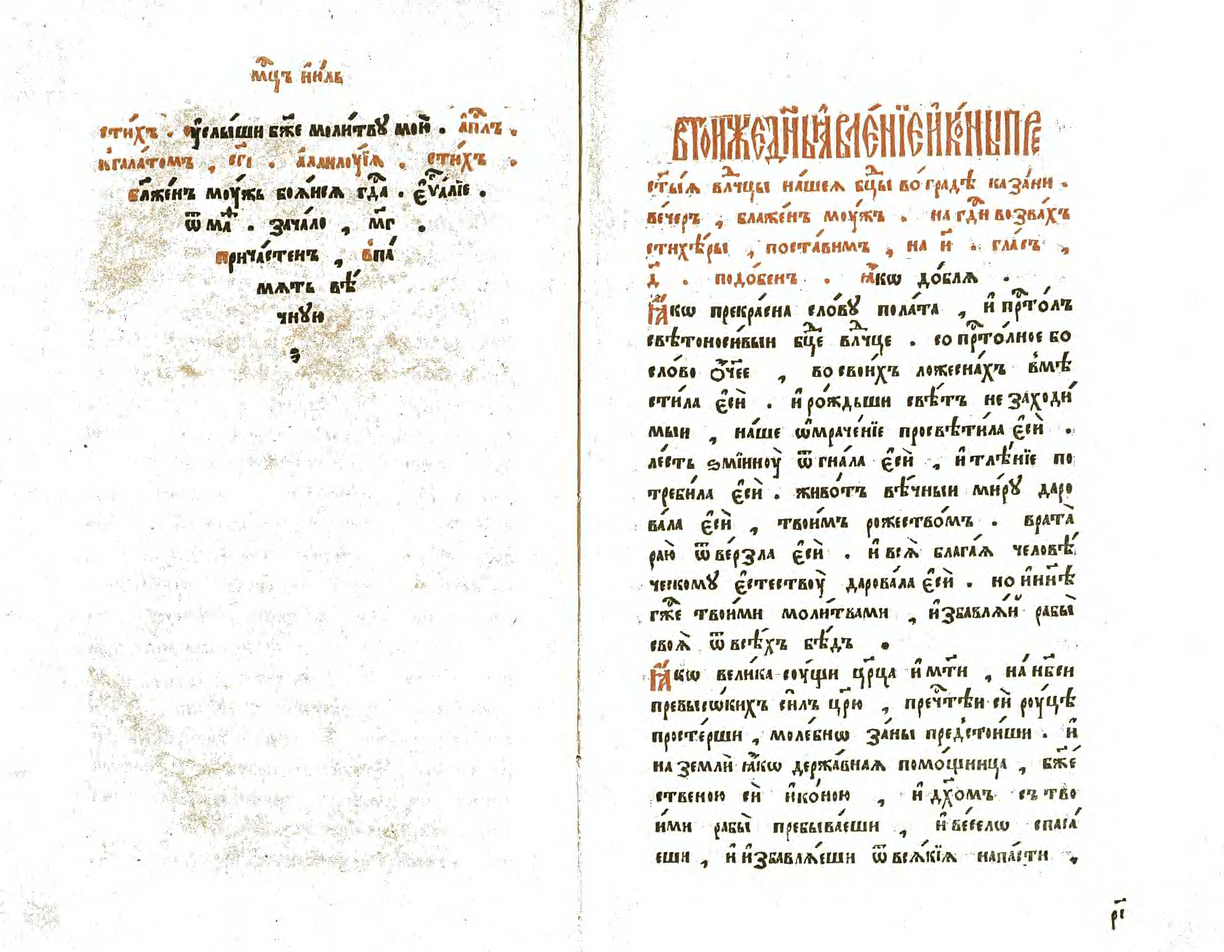 мⷭ҇цъ і҆ю́ль
сти́хъ . ᲂу҆слы́ши бж҃е моли́твꙋ мою̀ . а҆пⷭ҇лъ .
к̾гала́томъ , сг҃і . а҆ллилᲂу́їѧ . сти́хъ .
бл҃же́нъ мᲂу́жь боѧ́исѧ гдⷭ҇а . є҆ѵⷢ҇а́лїе .
ѿ маⷴ҇ . зача́ло , м҃г .
прича́стенъ , в̾па́
мѧть вѣ́
чнꙋю
втойжедн҃ь ꙗ҆вле́нїе и҆ко́ны пре
ст҃ы́ѧ влⷣчцы на́шеѧ бцⷣы во гра́дѣ каза́ни .
ве́черъ , блаже́нъ мᲂу́жъ . на гдⷭ҇и возва́хъ
стихе́ры , поста́вимъ , на и҃ . гла́съ ,
д҃ . подо́бенъ . ꙗ҆́кѡ до́блѧ .
Ꙗ҆́кѡ прекра́сна сло́вꙋ пола́та , и҆ прⷭ҇то́лъ
свѣтоноси́выи бцⷣе влⷣчце . сопрⷭ҇то́лное бо
сло́во ѻ҆́ч҃ее , во свои́хъ ложесна́хъ вмѣ
сти́ла є҆сѝ . и҆ рождьши свѣ́тъ не заходи́
мыи , на́ше ѡ҆мраче́нїе просвѣти́ла є҆сѝ .
ле́сть ѕмїи́нᲂу ѿгна́ла є҆сѝ , и҆ тлѣ́нїе по
треби́ла є҆сѝ . живо́тъ вѣ́чныи ми́рꙋ даро
ва́ла є҆сѝ , твои́мъ рожество́мъ . врата̀
раю̀ ѿве́рзла є҆сѝ . и҆ всѧ̀ блага́ѧ человѣ́
ческомꙋ є҆стествᲂу̀ дарова́ла є҆сѝ . но и҆ нн҃ѣ
гжⷭ҇е твои́ми моли́твами , и҆збавлѧ́й рабы̀
своѧ̀ ѿ всѣ́хъ бѣ́дъ .
Ꙗ҆́кѡ вели́ка сᲂу́щи цр҃ца и҆ мт҃и , на нб҃си
превысѡ́кихъ си́лъ цр҃ю , пречⷭ҇тѣи сѝ рᲂу́цѣ
просте́рши , моле́бнѡ за́ны предстои́ши . и҆
на землѝ ꙗ҆́кѡ держа́внаѧ помо́щница , бж҃е
ственою сѝ и҆ко́ною , и҆ дх҃омъ съ тво
и́ми рабы̀ пребыва́еши , и҆ ве́селѡ спаса́
еши , и҆ и҆збавлѧ́еши ѿ всѧ́кїѧ напа́сти ,
р҃і